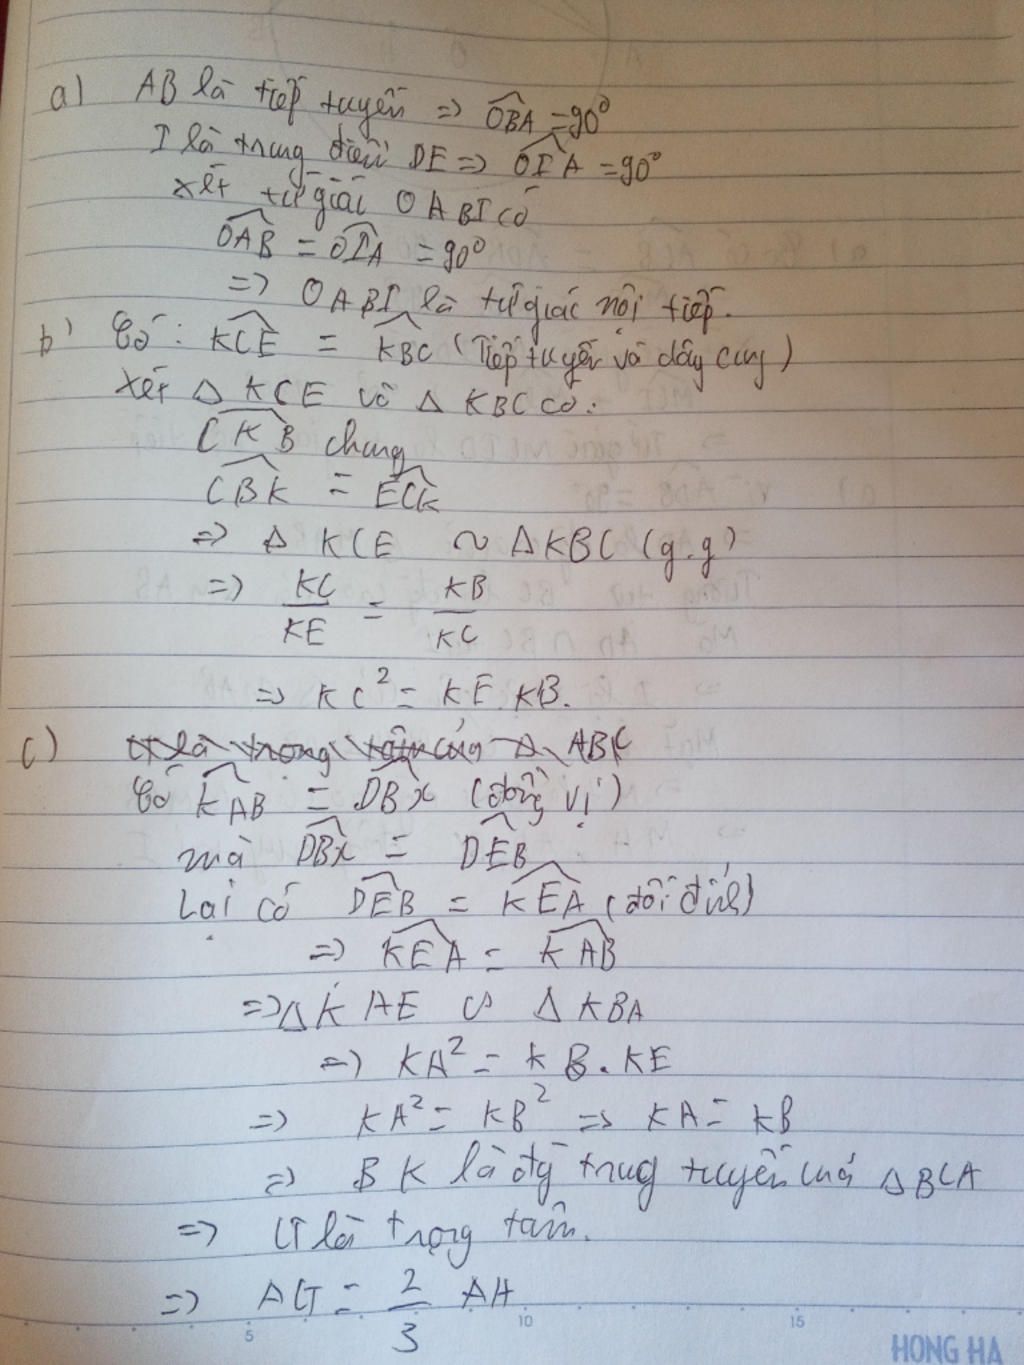 a) AB là tiếp tuyến => \widehat{OBA} = 90°
I là trung điểm DE => \widehat{OIA} = 90°
xét tứ giác OABI có
\widehat{OAB} = \widehat{OIA} = 90°
=> OABI là tứ giác nội tiếp.
b) Có: \widehat{KCE} = \widehat{KBC} (Tiếp tuyến và dây cung)
Xét Δ KCE và Δ KBC có:
\widehat{CKB} chung
\widehat{CBK} = \widehat{ECK}
=> Δ KCE ~ Δ KBC (g.g)
=> \frac{KC}{KE} = \frac{KB}{KC}
=> KC² = KE.KB.
c) G là trọng tâm của Δ ABC
Có \widehat{KAB} = \widehat{DBx} (đồng vị)
mà \widehat{DBx} = \widehat{DEB}
Lại có \widehat{DEB} = \widehat{KEA} (đối đỉnh)
=> \widehat{KEA} = \widehat{KAB}
=> Δ KAE ∽ Δ KBA
=> KA² = KB.KE
=> KA² = KB² => KA = KB
=> BK là đg trug tuyến cuả Δ BCA
=> G là trọng tâm.
=> AG = \frac{2}{3} AH
5 10 15
HONG HA